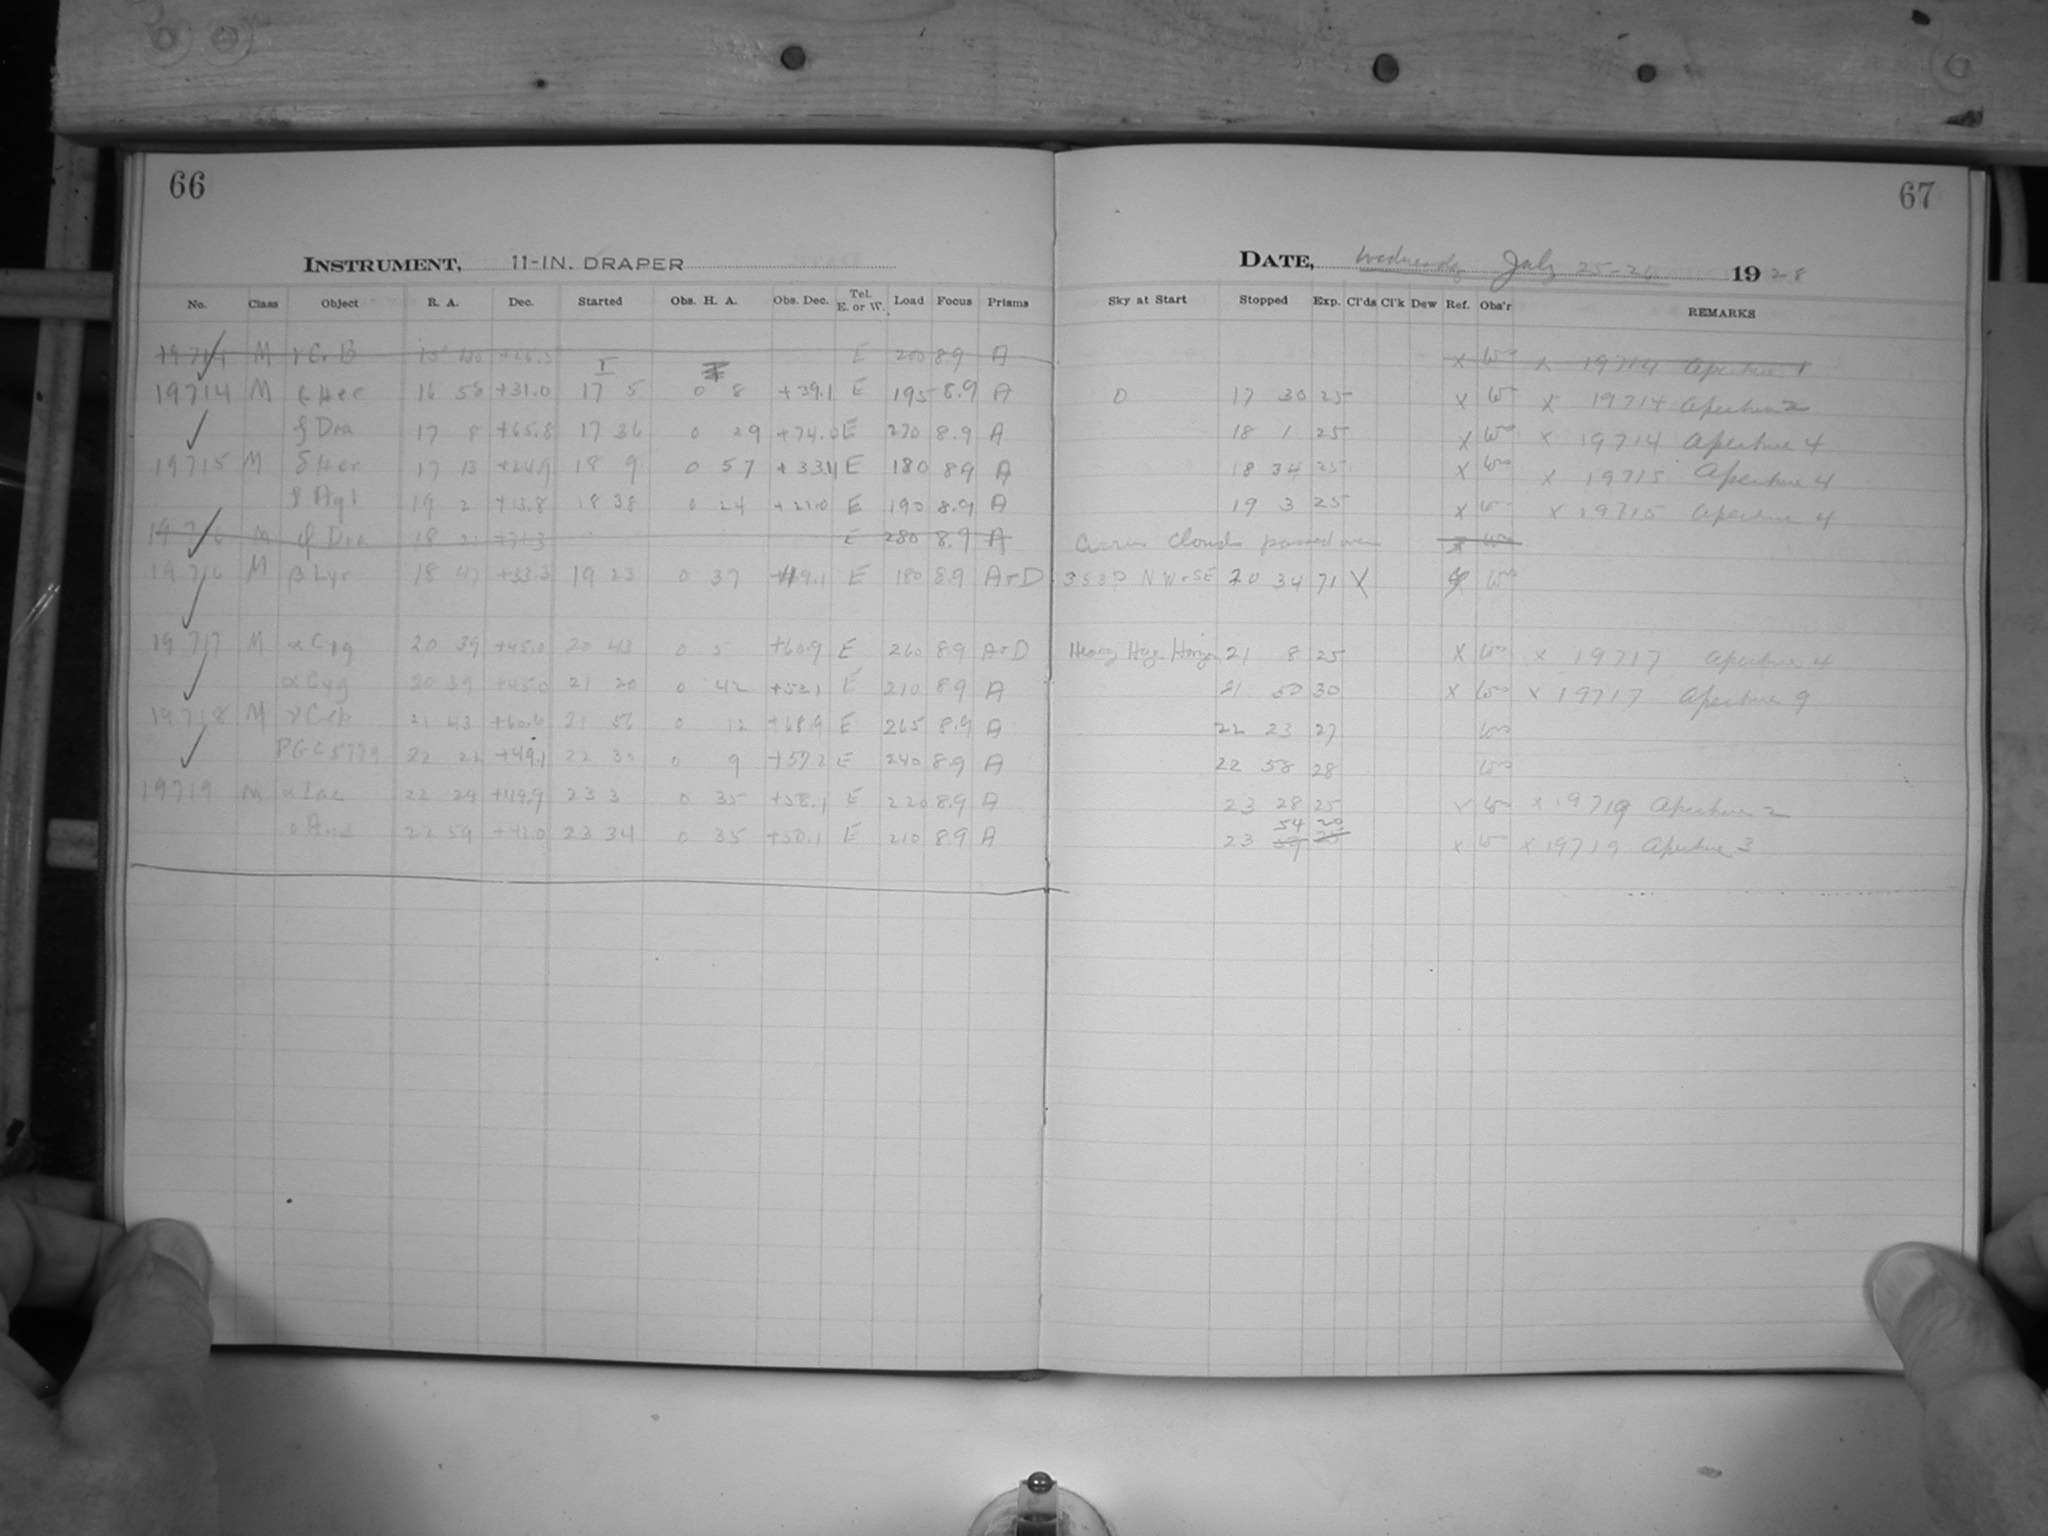 66
67
INSTRUMENT, 11-IN. DRAPER
DATE, Wednesday July 25-26 1928
No. Class Object R. A. Dec. Started Obs. H. A. Obs. Dec. Tel. E. or W. Load Focus Prisms Sky at Start Stopped Exp. Cl'ds Cl'k Dew Ref. Obs'r REMARKS
19714 M γ Cr B E 200 8.9 A x x 19714 Aperture 1
19714 M Her 16 56 +31.0 17 5 0 8 +39.1 E 195 8.9 A 0 17 30 25 x x 19714 Aperture 2
ζ Dra 17 8 +65.8 17 36 0 29 +74.0 E 270 8.9 A 18 1 25 x x 19714 Aperture 4
19715 M δ Her 17 13 +24.9 18 9 0 57 +33.1 E 180 8.9 A 18 34 25 x x 19715 Aperture 4
ζ Aql 19 2 +13.8 18 38 0 24 +21.0 E 190 8.9 A 19 3 25 x x 19715 Aperture 4
19716 M φ Dra 18 21 +71.3 E 280 8.9 A Cirrus Clouds passed over x
19716 M β Lyr 18 47 +33.3 19 23 0 37 E 180 8.9 A+D NW+SE 20 34 71 X
19717 M α Cyg 20 39 +45.0 20 43 0 5 +60.9 E 260 8.9 A+D Heavy Haze Horizon 21 8 25 x x 19717 Aperture 4
α Cyg 20 39 +45.0 21 20 0 42 +52.1 E 210 8.9 A 21 50 30 x x 19717 Aperture 9
19718 M ν Cep 21 43 +60.6 21 56 0 12 +68.9 E 265 8.9 A 22 23 27
PGC 5779 22 22 +49.1 22 30 0 9 +57.2 E 240 8.9 A 22 58 28
19719 M α Lac 22 29 +49.9 23 3 0 35 +58.1 E 220 8.9 A 23 28 25 x x 19719 Aperture 2
54 20
o And 22 59 +42.0 23 34 0 35 +50.1 E 210 8.9 A 23 59 25 x x 19719 Aperture 3